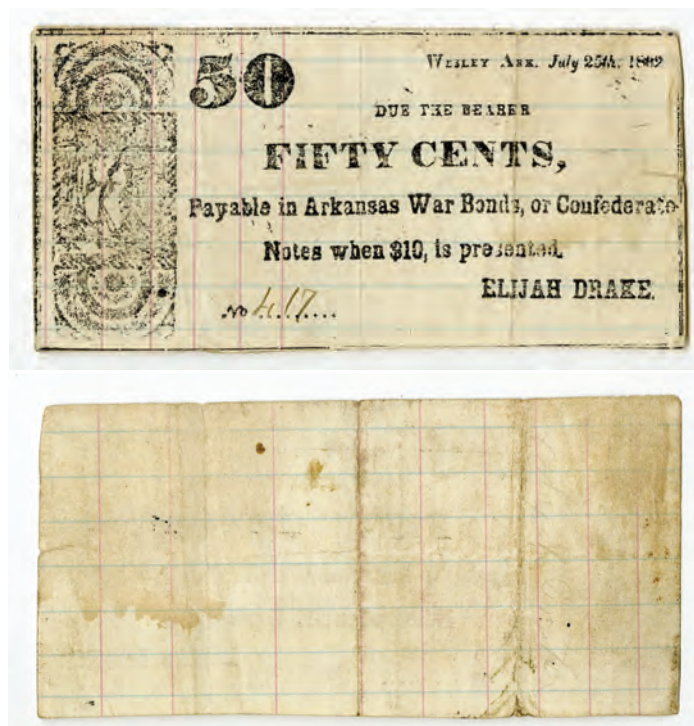 50
WESLEY ARK. July 25th, 1862
DUE THE BEARER
FIFTY CENTS,
Payable in Arkansas War Bonds, or Confederate
Notes when $10, is presented.
ELIJAH DRAKE.
No 417....